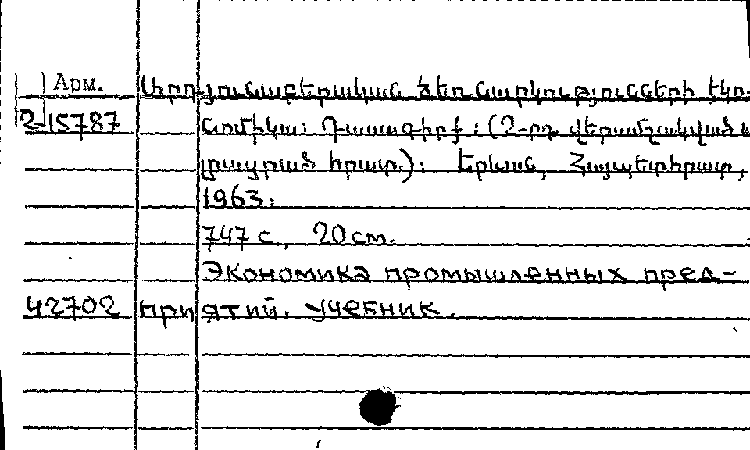 Арм. Արդյունաբերական ձեռնարկությունների էկո-
2-15787 նոմիկա: Դասագիրք: (2-րդ վերամշակված և
լրացրած հրատ.): Երևան, Հայպետհրատ,
1963:
747 с., 20 см.
Экономика промышленных пред-
42702 приятий. Учебник.